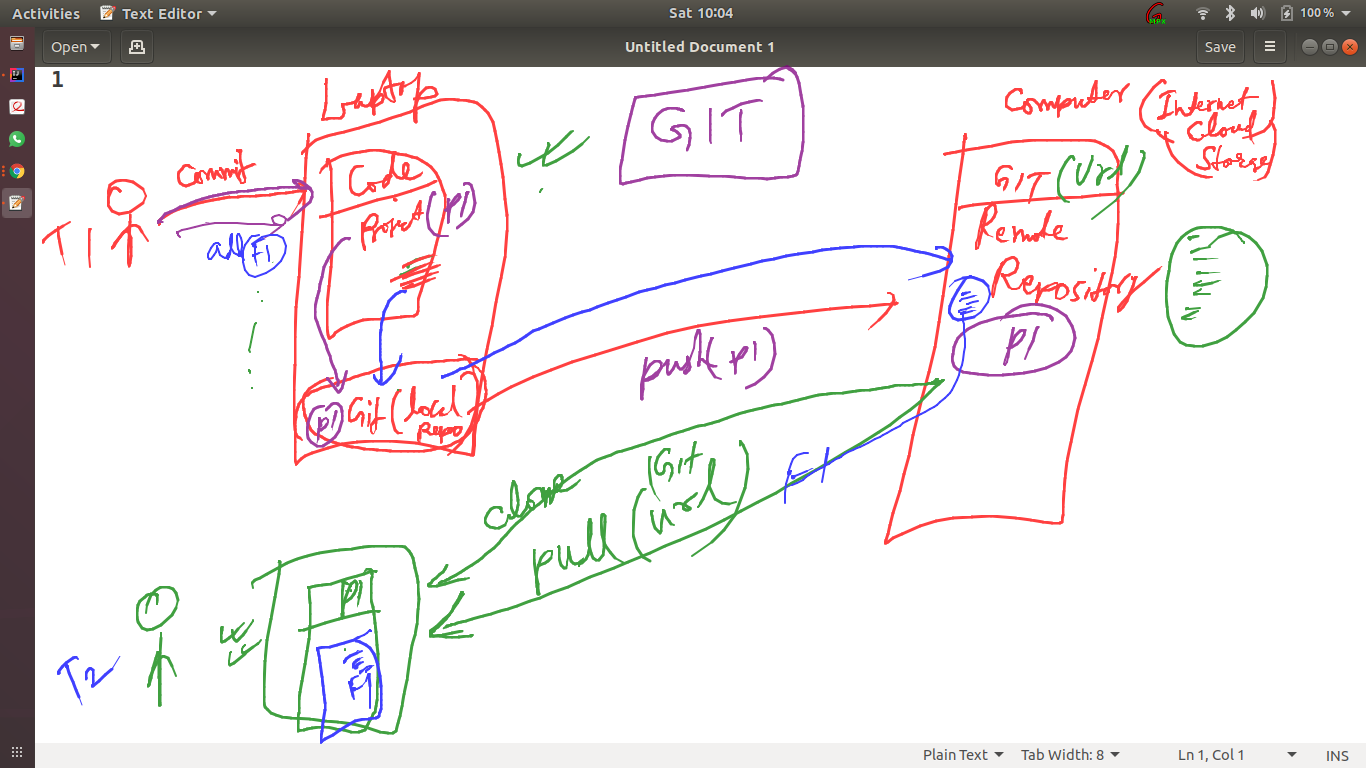 Activities
Text Editor
Sat 10:04
MPX
100%
Open
Untitled Document 1
Save
1
Laptop
GIT
Computer
Internet
Cloud
Storage
Commit
Code
GIT (Url)
T1
Project (P1)
Remote
add F1
Repository
P1
push (P1)
P1 Git (local
repo
clone
(Git
pull (url)
F1
P1
T2
F1
Plain Text
Tab Width: 8
Ln 1, Col 1
INS